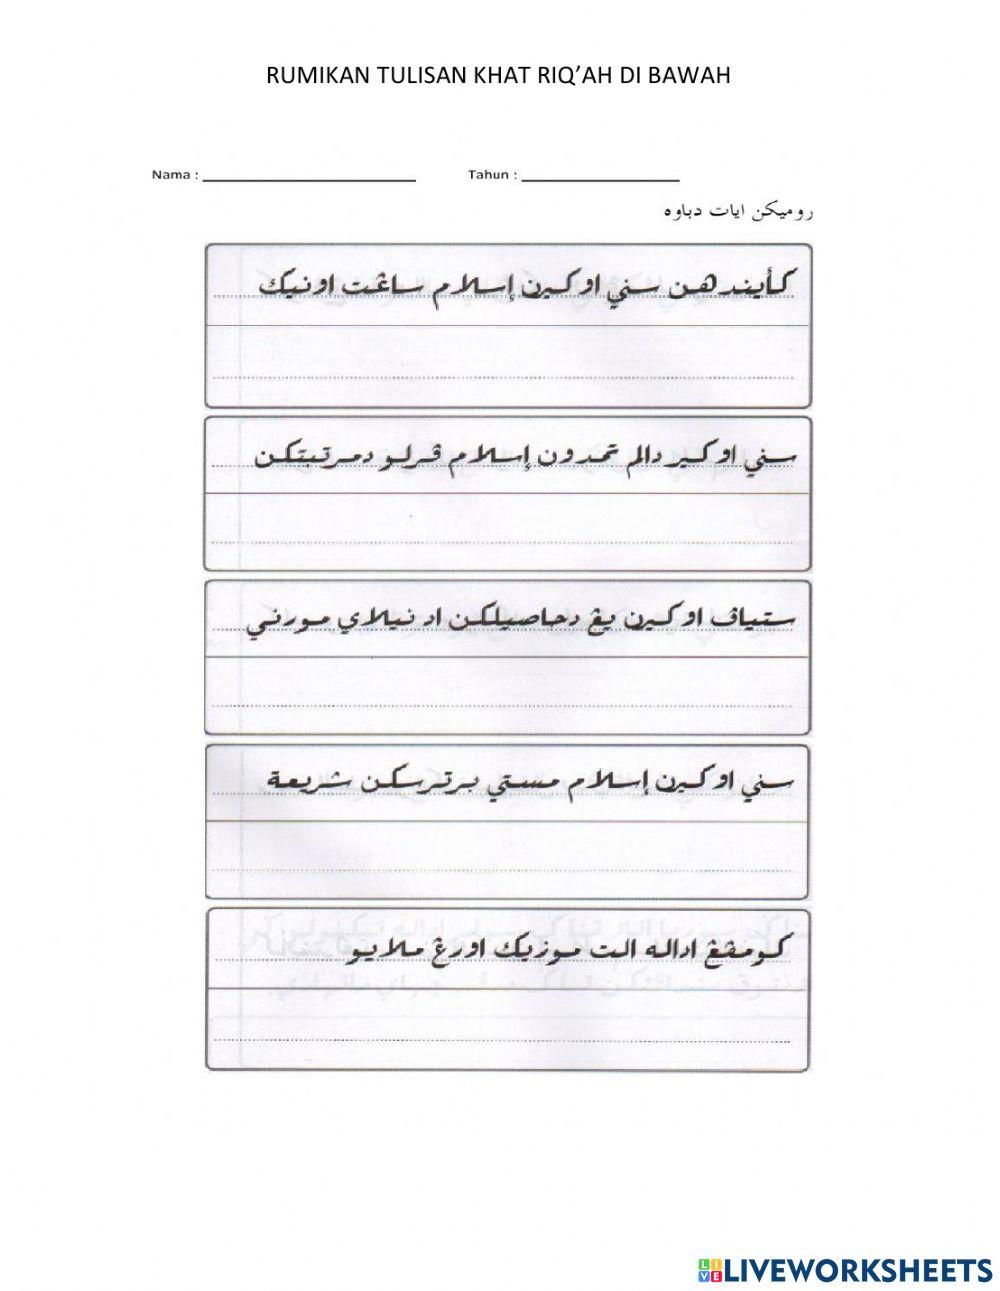 RUMIKAN TULISAN KHAT RIQ’AH DI BAWAH
Nama : Tahun :
روميكن ايات دباوه
كأيندهن سني اوكيرن إسلام ساڠت اونيك
سني اوكير دالم تمدون إسلام ڤرلو دمرتبتكن
ستياڤ اوكيرن يڠ دحاصيلكن اد نيلاي مورني
سني اوكيرن إسلام مستي برترسكن شريعة
كومڤڠ اداله الت موزيك اورڠ ملايو
LIVEWORKSHEETS